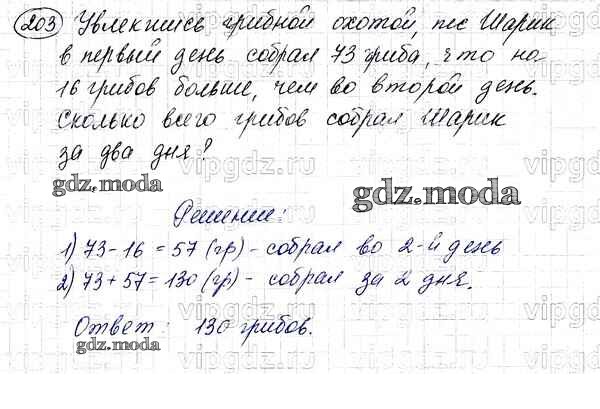 203 Увлекшись грибной охотой, пес Шарик
в первый день собрал 73 гриба, что на
16 грибов больше, чем во второй день.
Сколько всего грибов собрал Шарик
за два дня?
gdz.moda
gdz.moda
Решение:
1) 73-16=57 (гр) - собрал во 2-й день
2) 73+57=130 (гр) - собрал за 2 дня.
Ответ: 130 грибов.
gdz.moda
vipgdz.ru